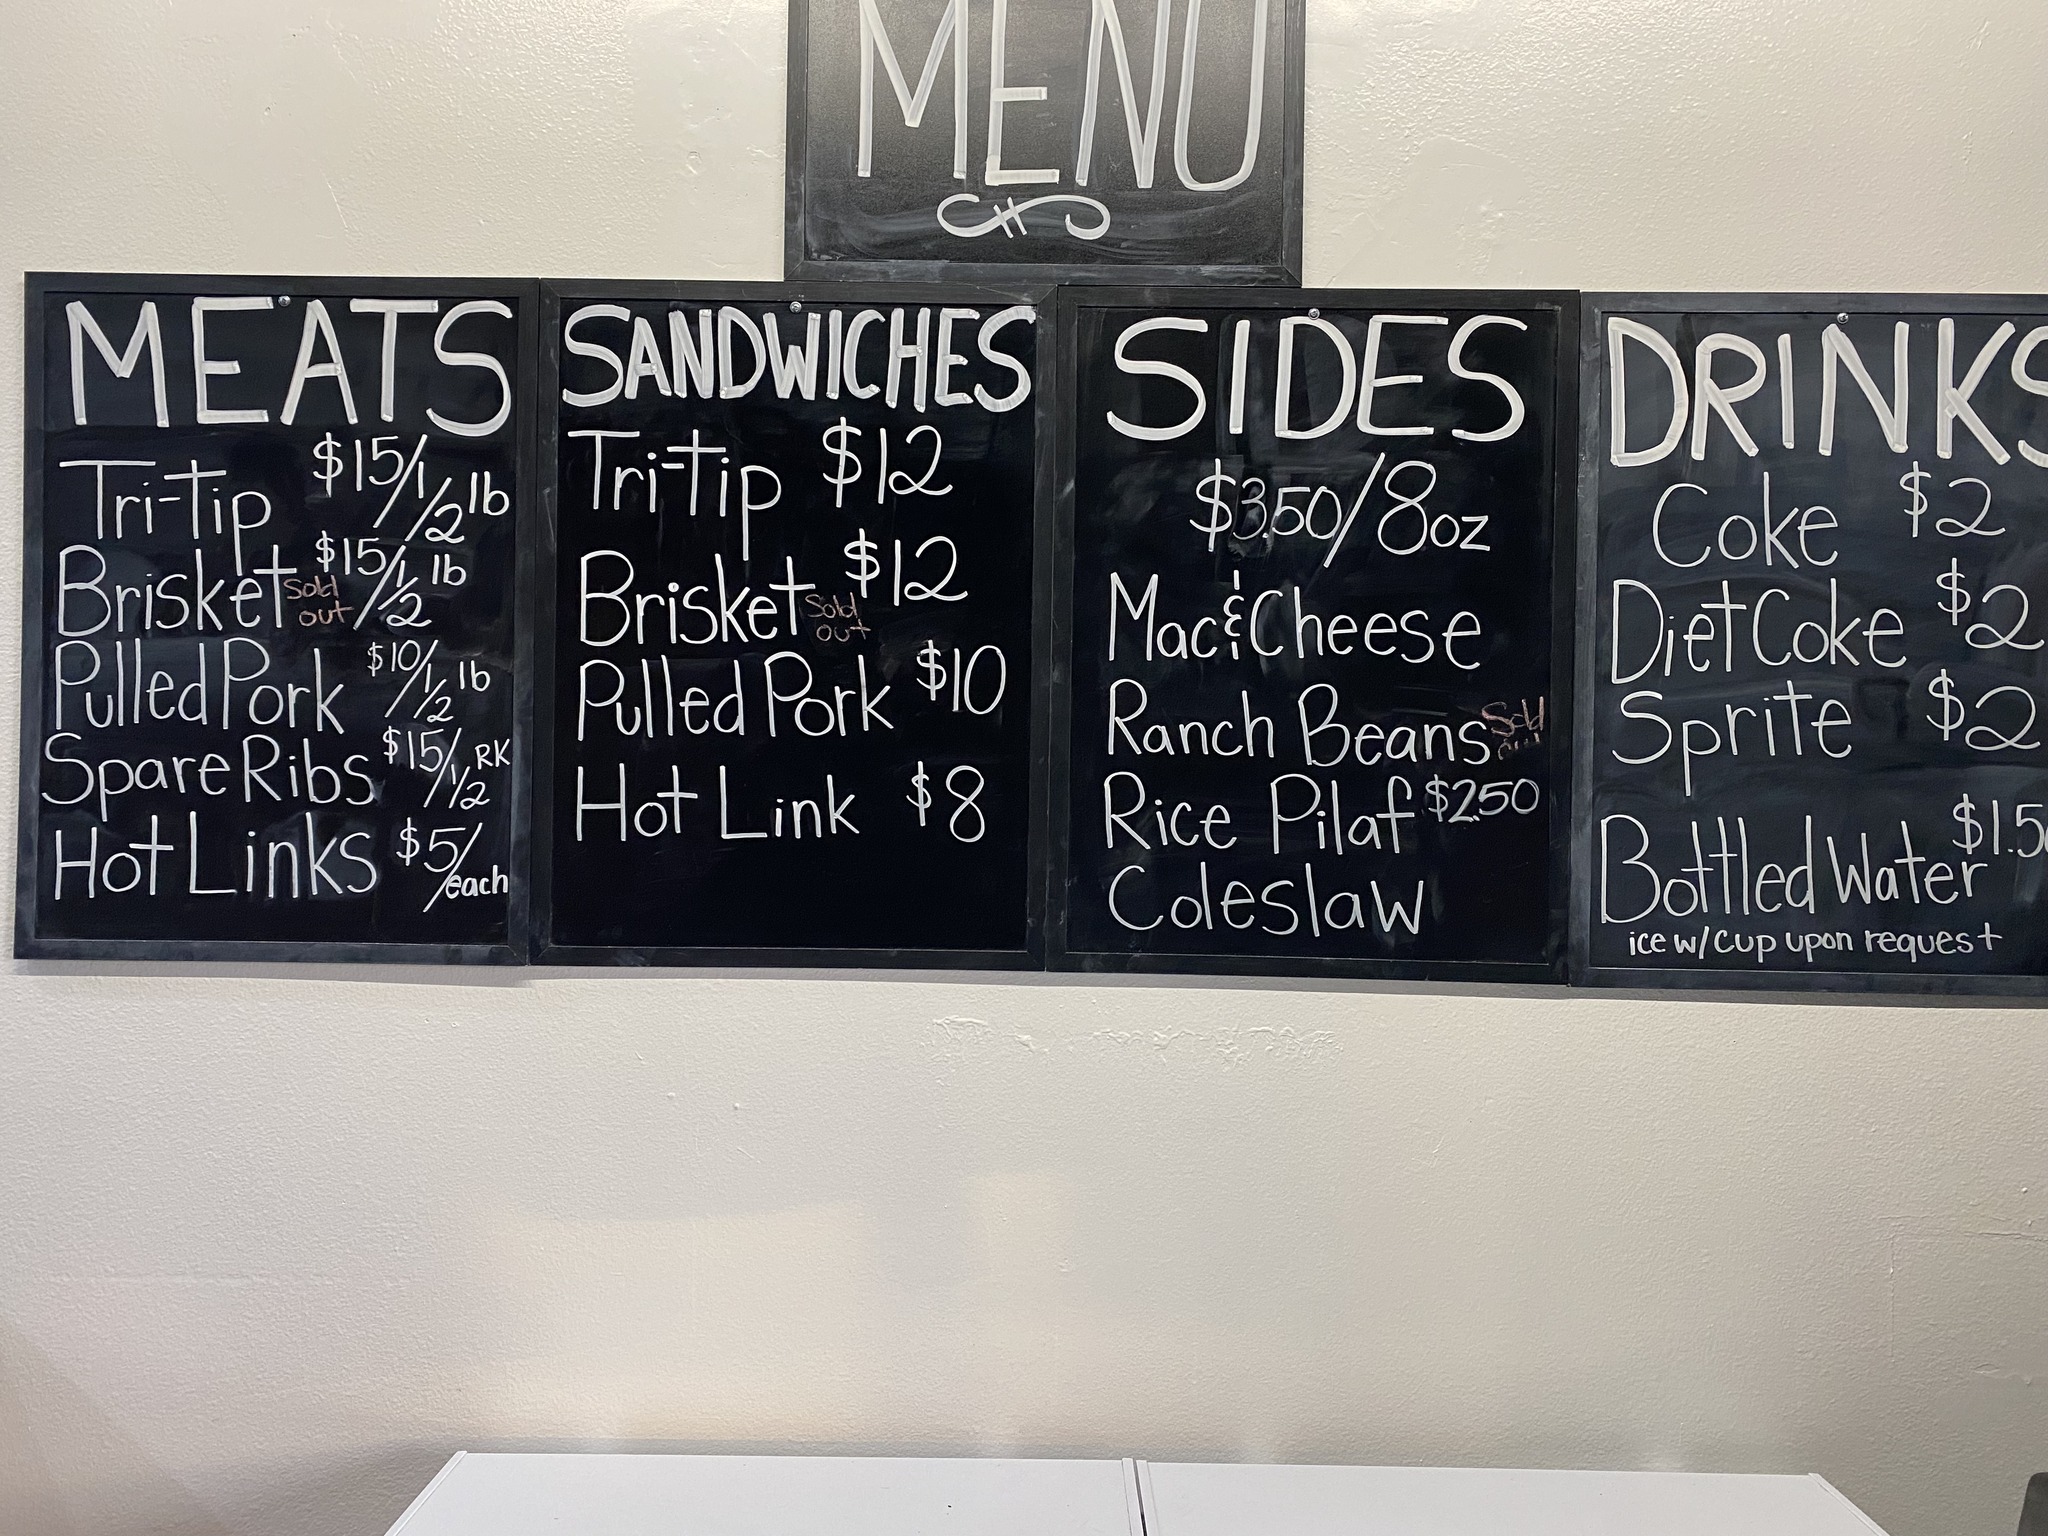 MENU
MEATS
Tri-tip $15/1/2 lb
Brisket Sold out $15/1/2 lb
Pulled Pork $10/1/2 lb
Spare Ribs $15/1/2 RK
Hot Links $5/each
SANDWICHES
Tri-tip $12
Brisket Sold out $12
Pulled Pork $10
Hot Link $8
SIDES
$3.50/8oz
Mac & Cheese
Ranch Beans Sold out
Rice Pilaf $2.50
Coleslaw
DRINKS
Coke $2
Diet Coke $2
Sprite $2
Bottled Water $1.50
ice w/cup upon request